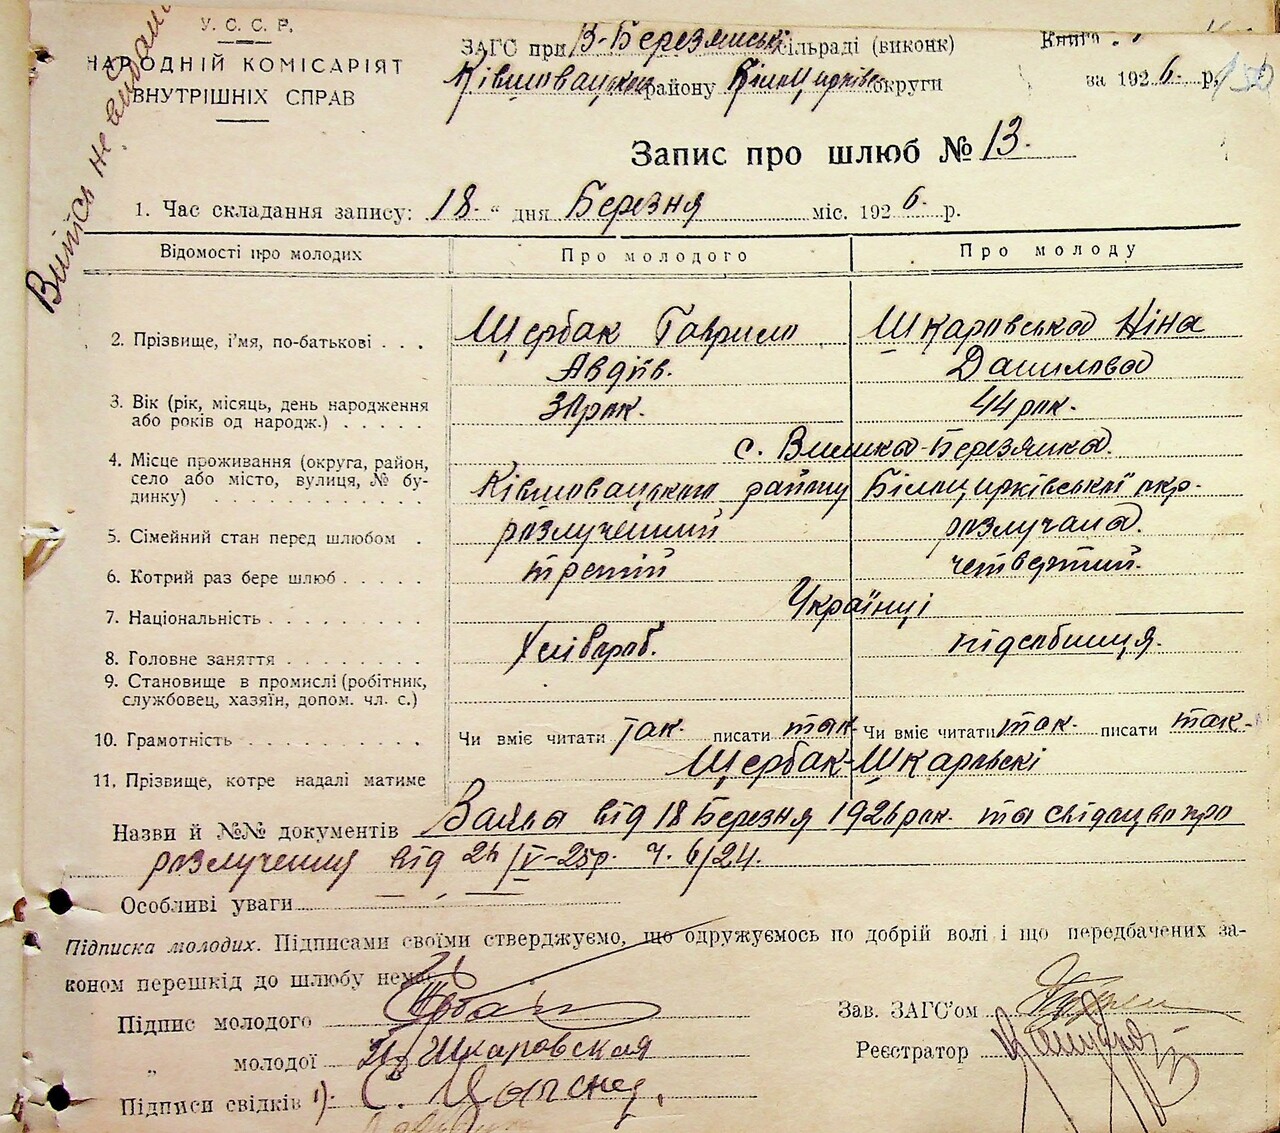 У. С. С. Р.
НАРОДНІЙ КОМІСАРІЯТ
ВНУТРІШНІХ СПРАВ
Витісь не видані
ЗАГС при В-Березянські сільраді (виконк)
Ківшовацького району Білоцерківс округи
Книга
за 1926. р.
Запис про шлюб № 13.
1. Час складання запису: 18. „ дня Березня міс. 1926. р.
Відомості про молодих Про молодого Про молоду
2. Прізвище, і'мя, по-батькові . . . Щербак Гаврило Шкаровська Ніна
Авдіїв. Данилова
3. Вік (рік, місяць, день народження
або років од народж.) . . . . . рок. 44 рок.
4. Місце проживання (округа, район,
село або місто, вулиця, № бу-
динку) . . . . . . . . . .
с. Велика-Березянка.
Ківшовацького району Білоцирківської окр.
5. Сімейний стан перед шлюбом . розлучений розлучана.
6. Котрий раз бере шлюб . . . . . третій четвертий.
7. Національність . . . . . . . . . Українці
8. Головне заняття . . . . . . . . Хлібороб. підсобниця.
9. Становище в промислі (робітник,
службовец, хазяїн, допом. чл. с.)
10. Грамотність . . . . . . . . . . Чи вміє читати так. писати так. Чи вміє читати так. писати так-
11. Прізвище, котре надалі матиме Щербак-Шкарльскі
Назви й №№ документів Заява від 18 Березня 1926 рок. та свідоцво про
розлучення від /V-25р. ч. 6/24.
Особливі уваги
Підписка молодих. Підписами своїми стверджуємо, що одружуємось по добрій волі і що передбачених за-
коном перешкід до шлюбу немає
Підпис молодого
„ молодої Шкаровская
Підписи свідків 1).
Зав. ЗАГС'ом
Реєстратор